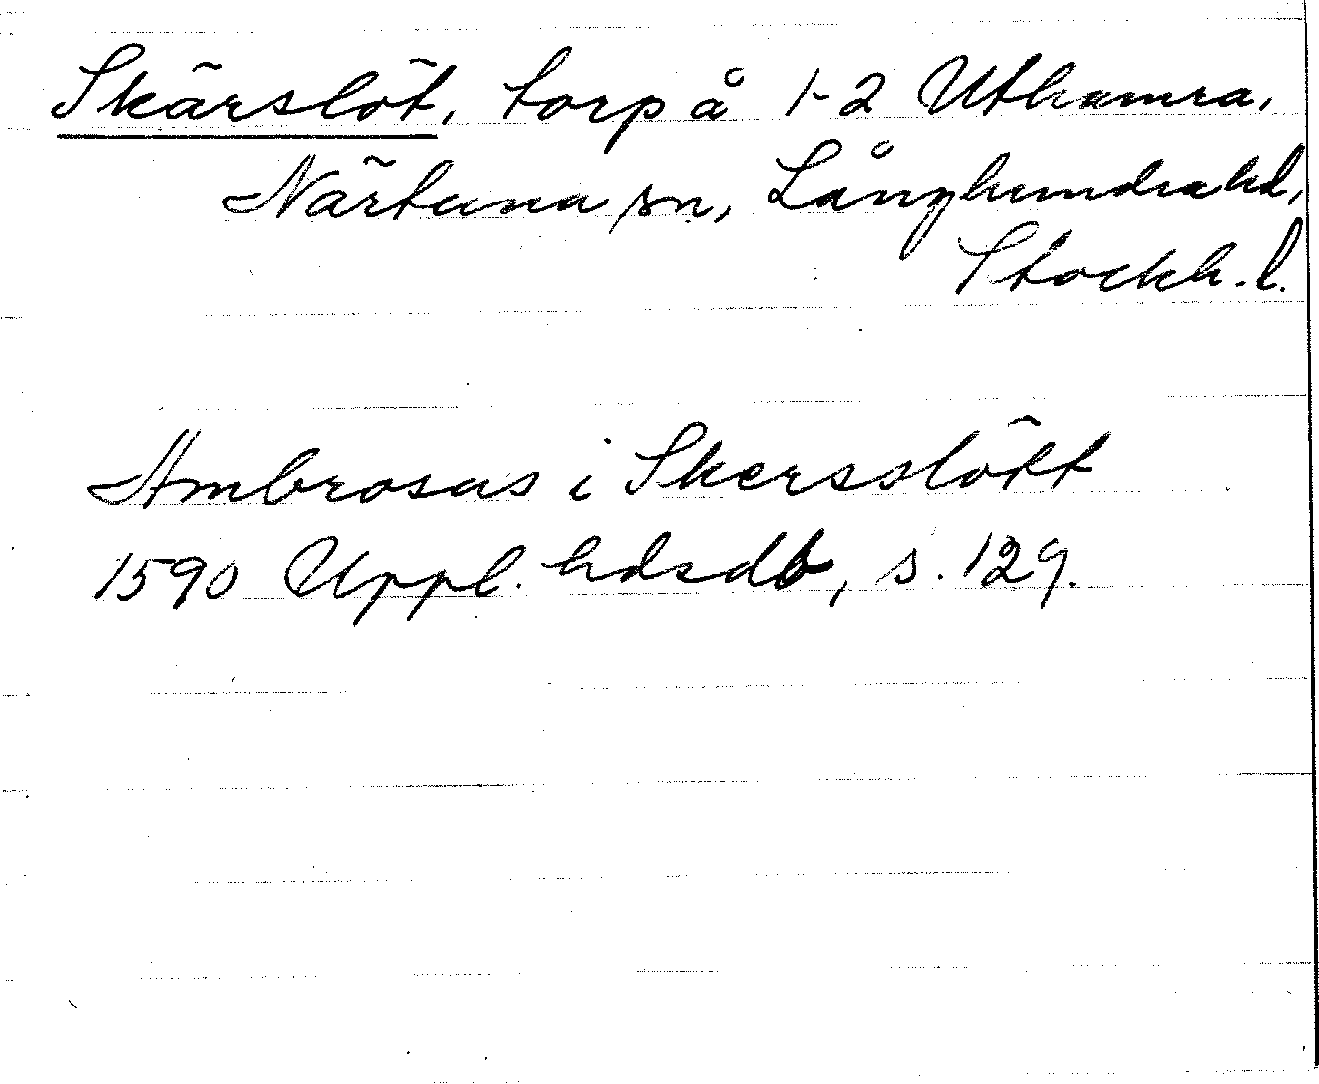 Skärslöt, torp å 1-2 Uthamra,
Närtuna sn, Långhundra hd,
Stockh. l.
Ambrosus i Skersslött
1590 Uppl. hdsdb, s. 129.